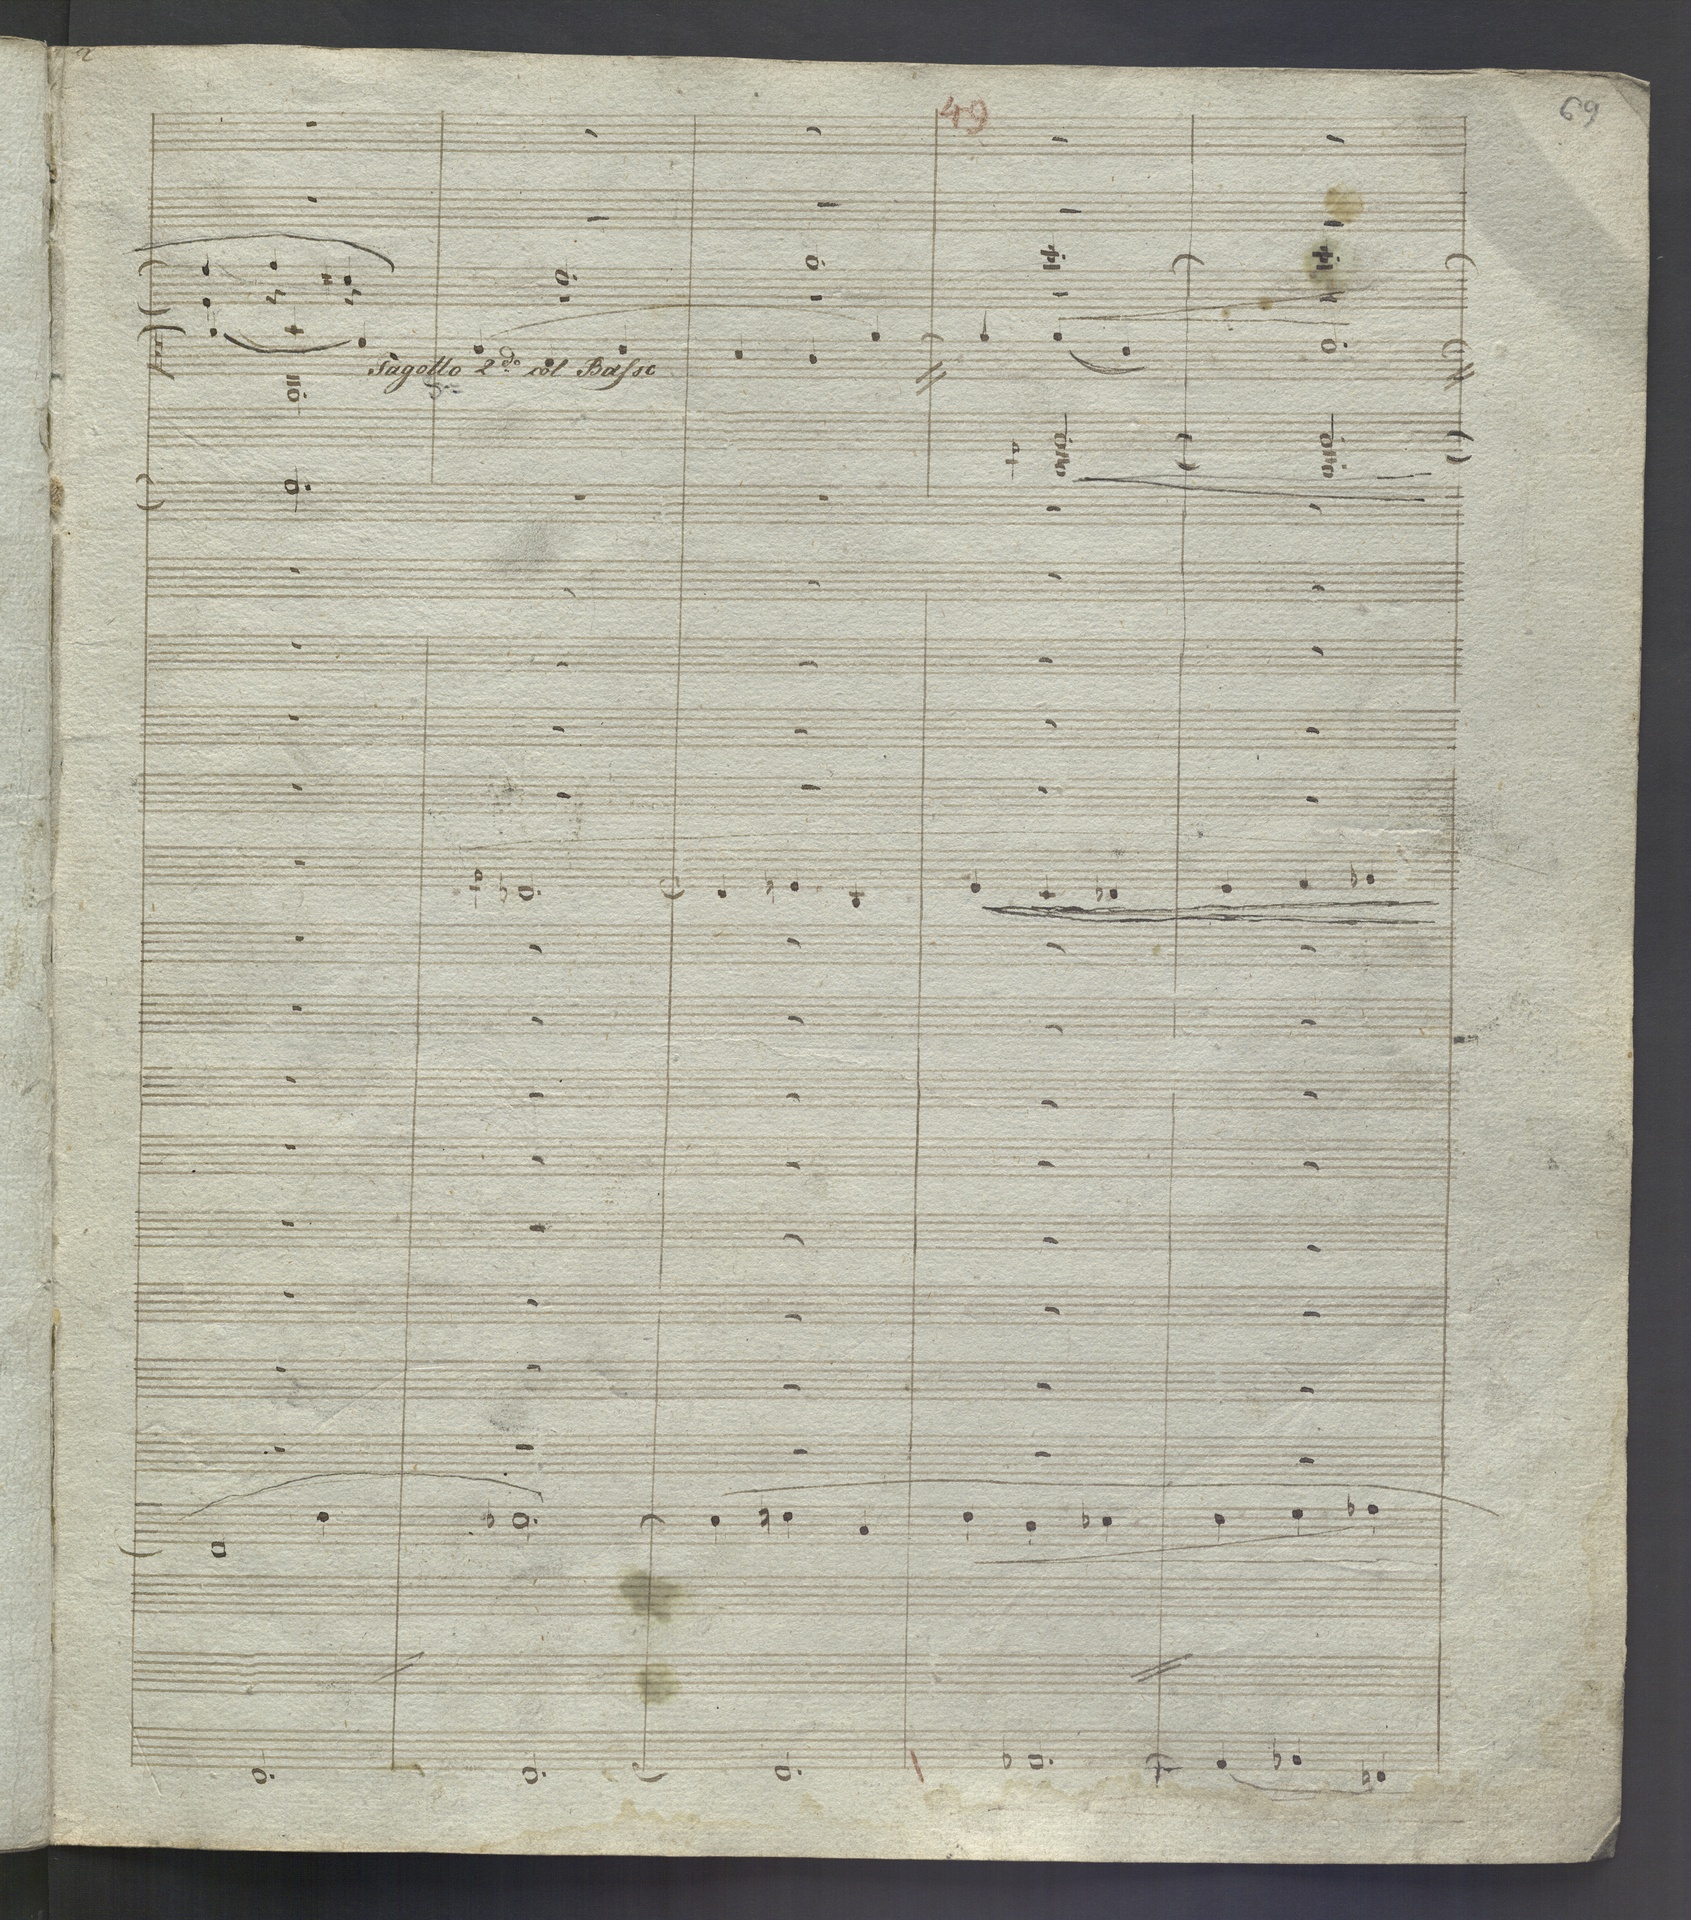 49
69
Fagotto 2do col Basso